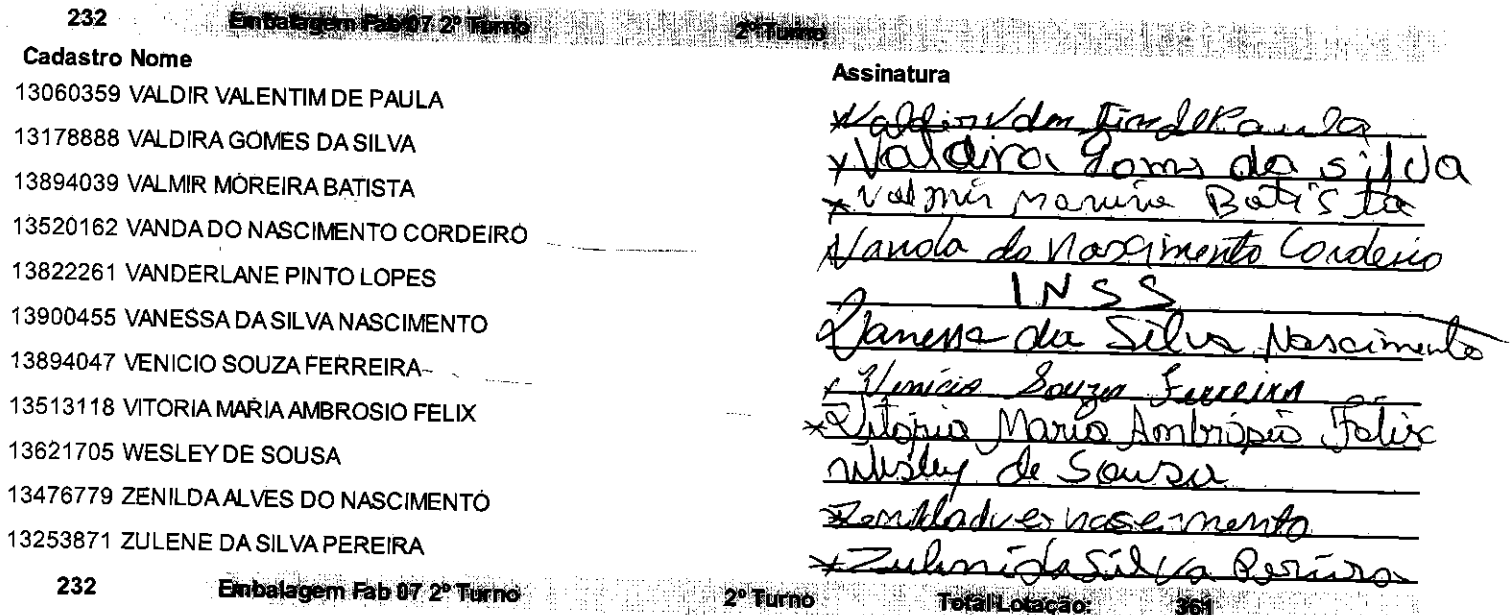 232 Embalagem Fab 07 2º Turno 2º Turno
Cadastro Nome Assinatura
13060359 VALDIR VALENTIM DE PAULA Valdir Valentim de Paula
13178888 VALDIRA GOMES DA SILVA x Valdira Gomes da silva
13894039 VALMIR MOREIRA BATISTA x Valmir Batista
13520162 VANDA DO NASCIMENTO CORDEIRO Vanda do Nascimento Cordeiro
13822261 VANDERLANE PINTO LOPES INSS
13900455 VANESSA DA SILVA NASCIMENTO Vanessa da Silva Nascimento
13894047 VENICIO SOUZA FERREIRA x Venicio Souza Ferreira
13513118 VITORIA MARIA AMBROSIO FELIX x Vitoria Maria Ambrosio Felix
13621705 WESLEY DE SOUSA Wesley de Sousa
13476779 ZENILDA ALVES DO NASCIMENTO
13253871 ZULENE DA SILVA PEREIRA x da Silva
232 Embalagem Fab 07 2º Turno 2º Turno Total Lotação: 361